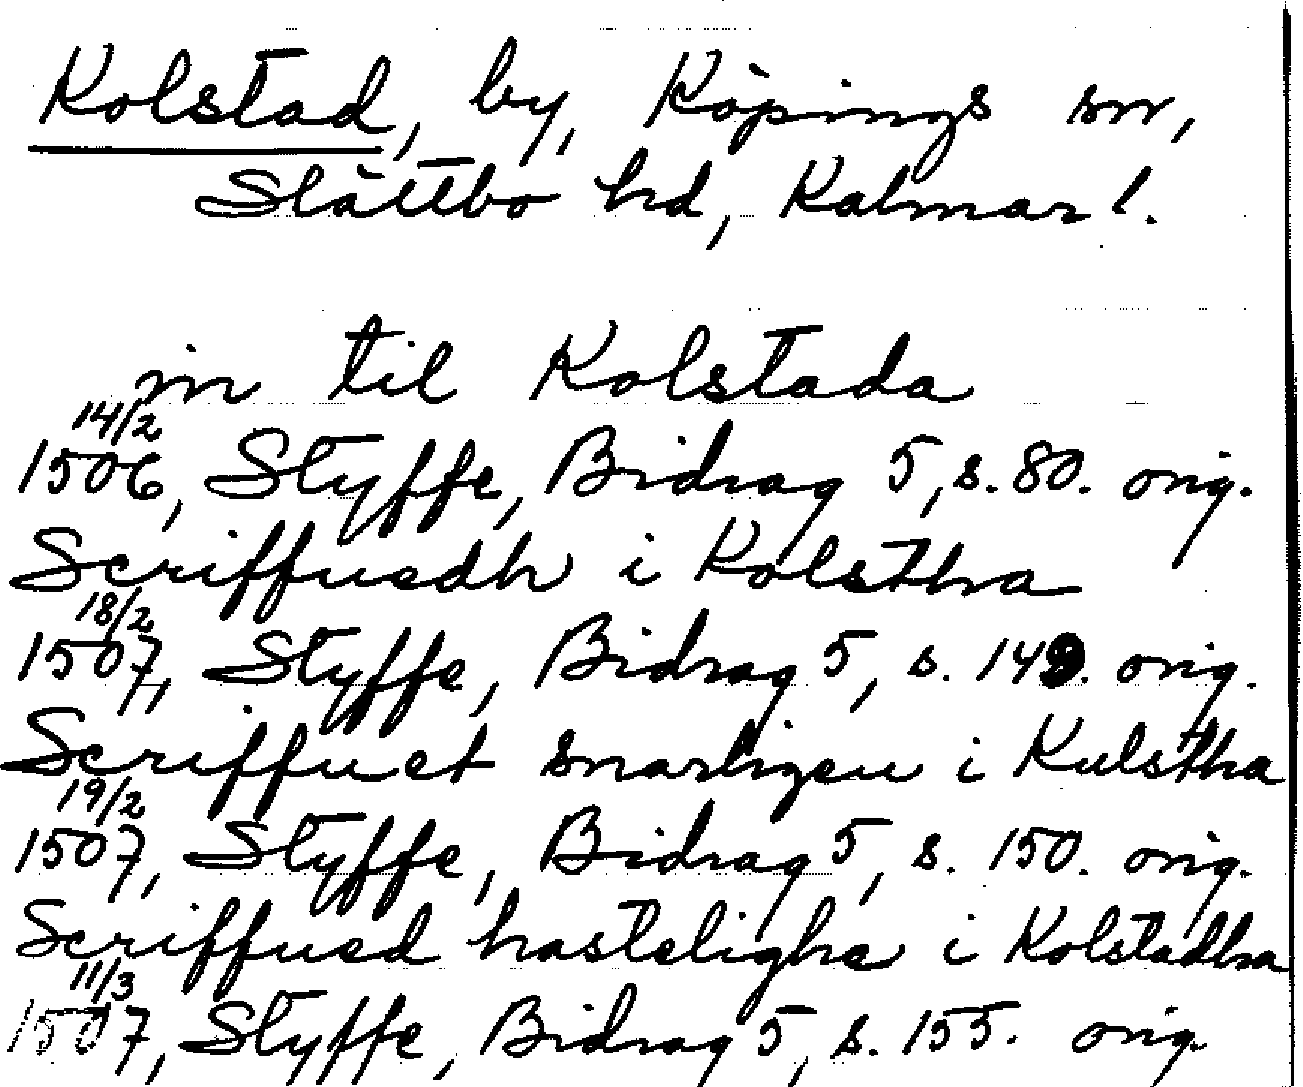 Kolstad, by, Köpings sn,
Slättbo hd, Kalmar l.
in til Kolstada
14/2
1506, Styffe, Bidrag 5, s. 80. orig.
Scriffuedh i Kolstha
18/2
1507, Styffe, Bidrag 5, s. 149. orig.
Scriffuet snarligen i Kulstha
19/2
1507, Styffe, Bidrag 5, s. 150. orig.
Scriffued hastelighe i Kolstadha
11/3
1507, Styffe, Bidrag 5, s. 155. orig